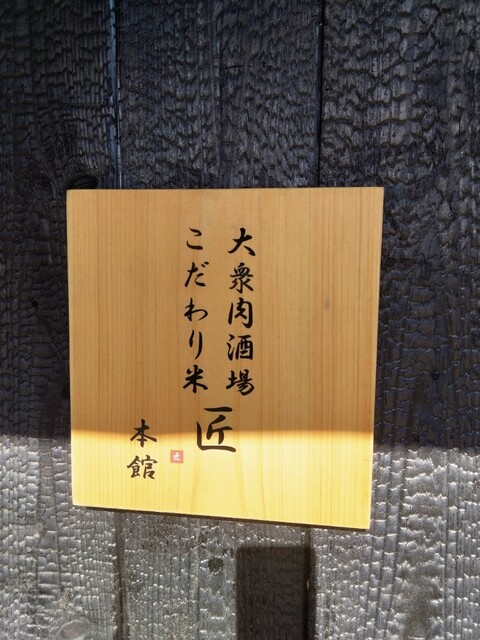 大衆肉酒場
こだわり米
匠
本館